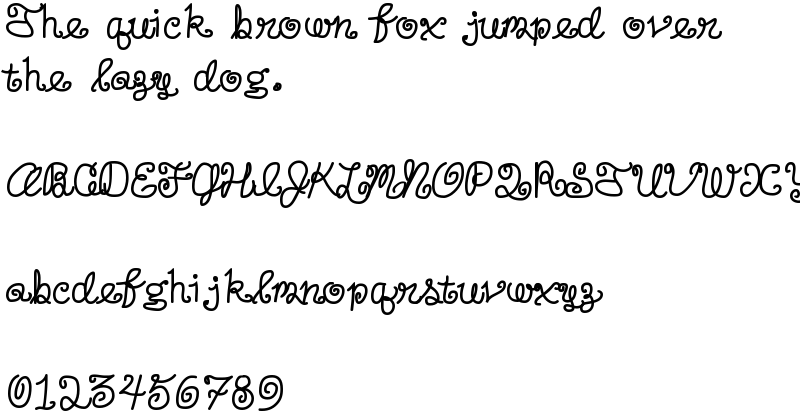 The quick brown fox jumped over
the lazy dog.
ABCDEFGHIJKLMNOPQRSTUVWXY
abcdefghijklmnopqrstuvwxyz
0123456789